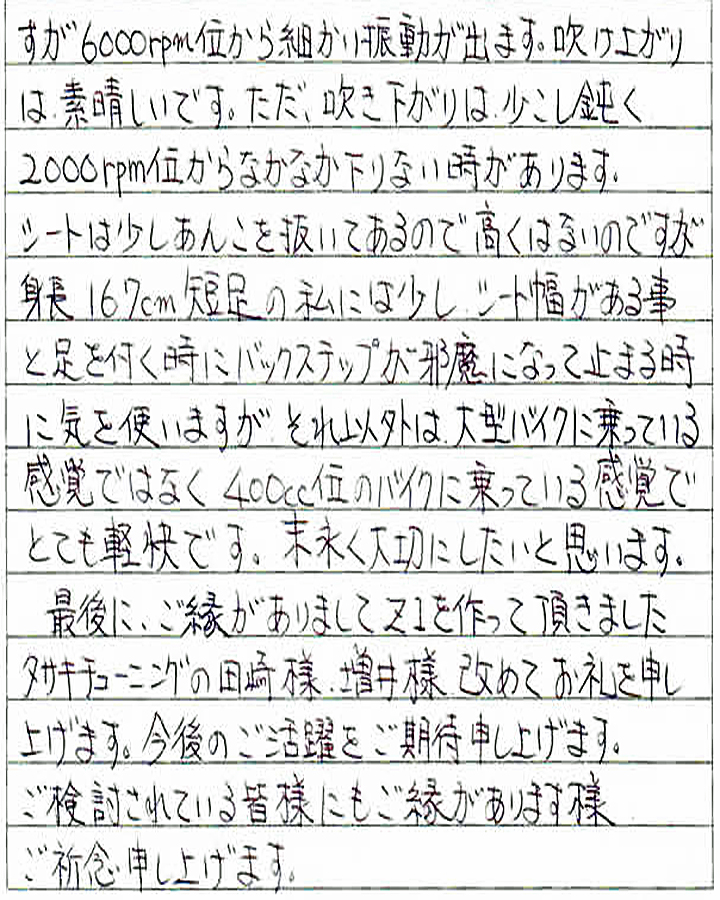 すが6000rpm位から細かい振動が出ます。吹け上がり
は、素晴しいです。ただ、吹き下がりは、少こし鈍く
2000rpm位からなかなか下りない時があります。
シートは少しあんこを抜いてあるので高くはないのですが
身長167cm短足の私には少し、シート幅がある事
と足を付く時にバックステップが邪魔になって止まる時
に気を使いますが、それ以外は、大型バイクに乗っている
感覚ではなく400cc位のバイクに乗っている感覚で
とても軽快です。末永く大切にしたいと思います。
最後に、ご縁がありましてZ1を作って頂きました
タサキチューニングの田崎様、増井様、改めてお礼を申し
上げます。今後のご活躍をご期待申し上げます。
ご検討されている皆様にもご縁があります様
ご祈念申し上げます。